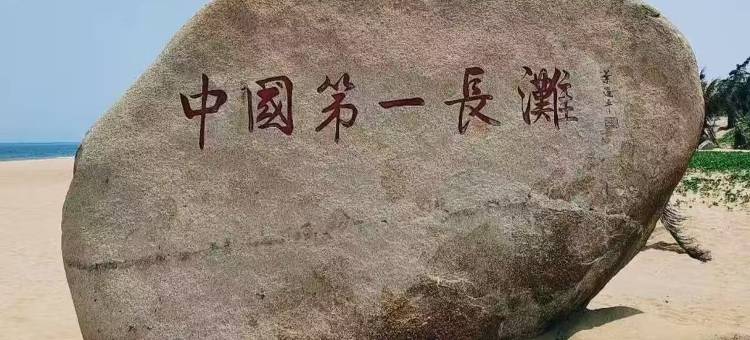 中國第一長灘